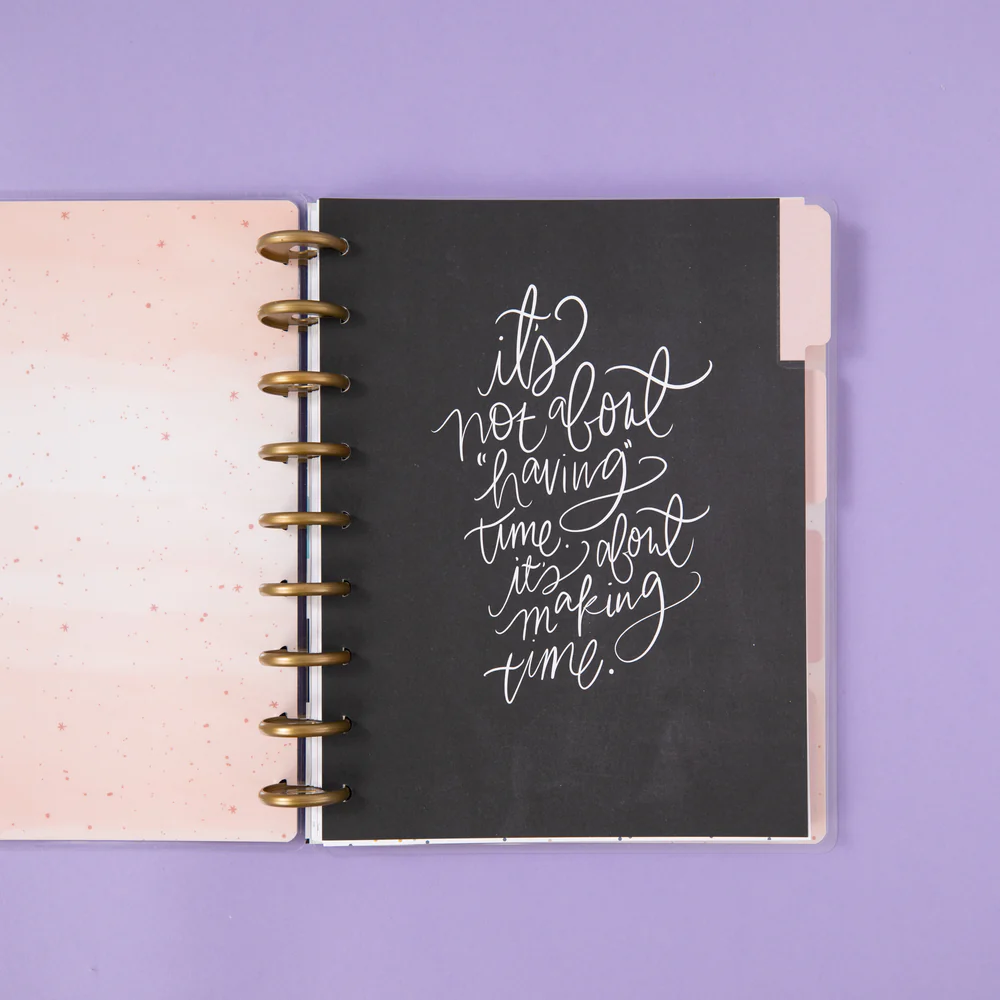 it's
not about
"having"
time. about
it's
making
time.